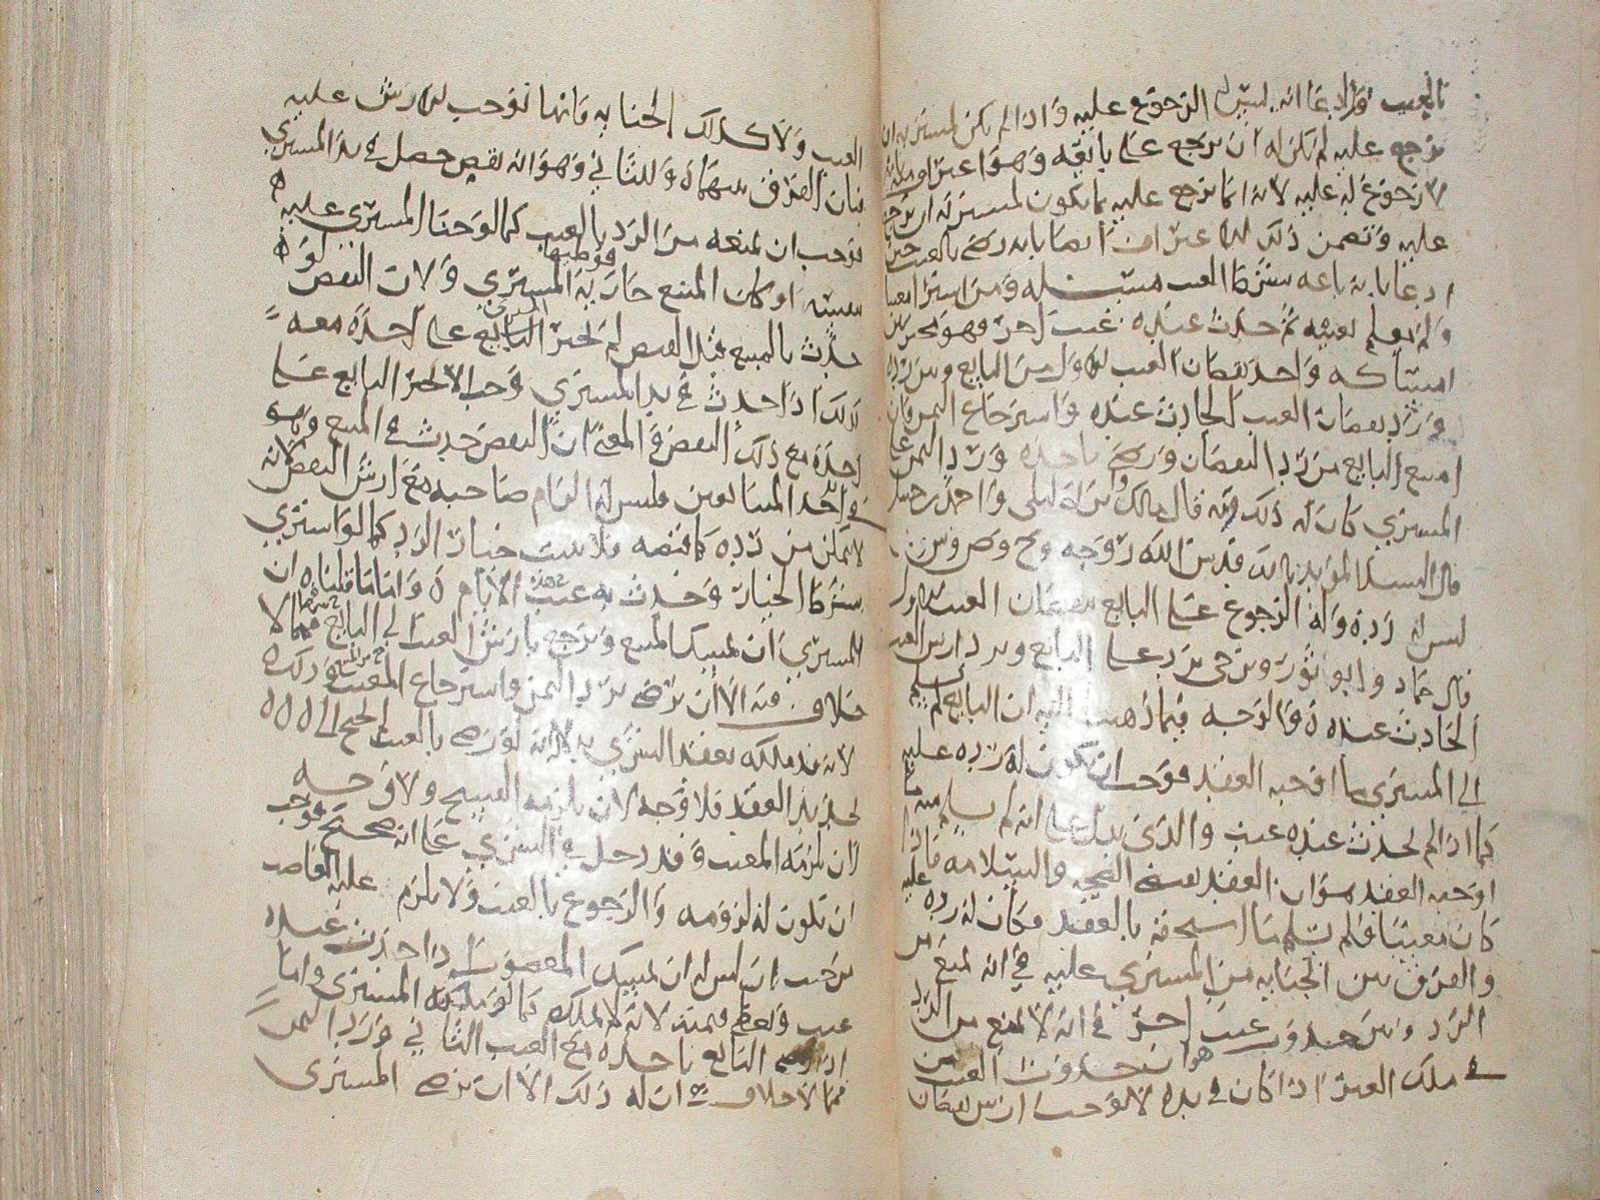 بالعيب فلما ادعا انه ليس له الرجوع عليه واذا لم يكن للمشتري ان
يرجع عليه لم يكن له ان يرجع على بايعه وهو اعترافه بانه
لا رجوع له عليه لانه انما يرجع عليه بما يكون للمشتري ان يرجع
عليه وتضمن ذلك الاعتراف ايضا بانه رضي بالعيب حين
ادعا بانه باعه بشرط العيب مسئلة ومن اشترا معيبا
ولم يعلم بعيبه ثم حدث عنده عيب اخر فهو مخير بين
امساكه واخذ نقصان العيب الاول من البايع وبين رده
ورد نقصان العيب الحادث عنده واسترجاع الثمن فان
امتنع البايع من رد النقصان ورضي باخذه ورد الثمن على
المشتري كان له ذلك وبه قال مالك وابن ابي ليلى واحمد بن حنبل
قال السيد المؤيد بالله قدس الله روحه و ح و ص و ش
ليس له رده وله الرجوع على البايع بنقصان العيب الاول
قال حماد وابو ثور و يرد على البايع ويرد ارش العيب
الحادث عنده والوجه فيما ذهبنا اليه ان البايع لم يسلم
الى المشتري ما اوجبه العقد فوجب ان يكون له رده عليه
كما اذا لم يحدث عنده عيب والذي يدل على انه لم يسلم منه ما
اوجبه العقد هو ان العقد يقتضي الصحة والسلامة فاذا
كان معيبا فلم يسلم ما استحقه بالعقد فكان له رده عليه
والفرق بين الجناية من المشتري عليه في انه يمنع من
الرد وبين حدوث عيب اخر في انه لا يمنع من الرد
هو ان حدوث العيب من
في ملك العين اذا كان في يده لا يوجب ارش نقصان
العيب ولا كذلك الجناية فانها توجب الارش عليه
فبان الفرق بينهما وللثاني وهو انه نقص حصل في يد المشتري
فوجب ان يمنعه من الرد بالعيب كما لو جنا المشتري عليه
بعيبه او كان المبيع جارية المشتري فوطيها ولان النقص لو
حدث بالمبيع قبل القبض لم يجبر المشتري على اخذه معه
كذلك اذا حدث في يد المشتري وجب الا يجبر البايع على
اخذه مع ذلك النقص والمعنى ان النقص حدث في المبيع وهو
في يد احد المتبايعين فليس له الزام صاحبه مع ارش النقص لانه
لا يمكن من رده كما قبضه فلا يثبت خيار الرد كما لو اشترى
بشرط الخيار وحدث به عيب في هذه الايام واما ما قلناه ان
المشتري ان يمسك المبيع ويرجع بارش العيب الى البايع فمما لا
خلاف فيه الا ان يرضى برد الثمن واسترجاع المعيب وذلك
لانه قد ملكه بعقد الشري بدلالة انه لو رضي بالعيب لم يحتج الى
تجديد العقد فلا وجه لان يلزمه الفسخ ولا وجه
لان يلزمه المعيب وقد دخل في الشري على انه صحيح فوجب
ان تكون له لزومه والرجوع بالعيب ولا يلزم عليه الغاصب
من حيث ان ليس له ان يمسك المغصوب اذا حدث عنده
عيب ويعطي قيمته لانه لا يملكه كما يملكه المشتري واما
اذا رضي البايع باخذه مع العيب الثاني ورد الثمن
فمما لا خلاف في ان له ذلك الا ان يرضى المشتري